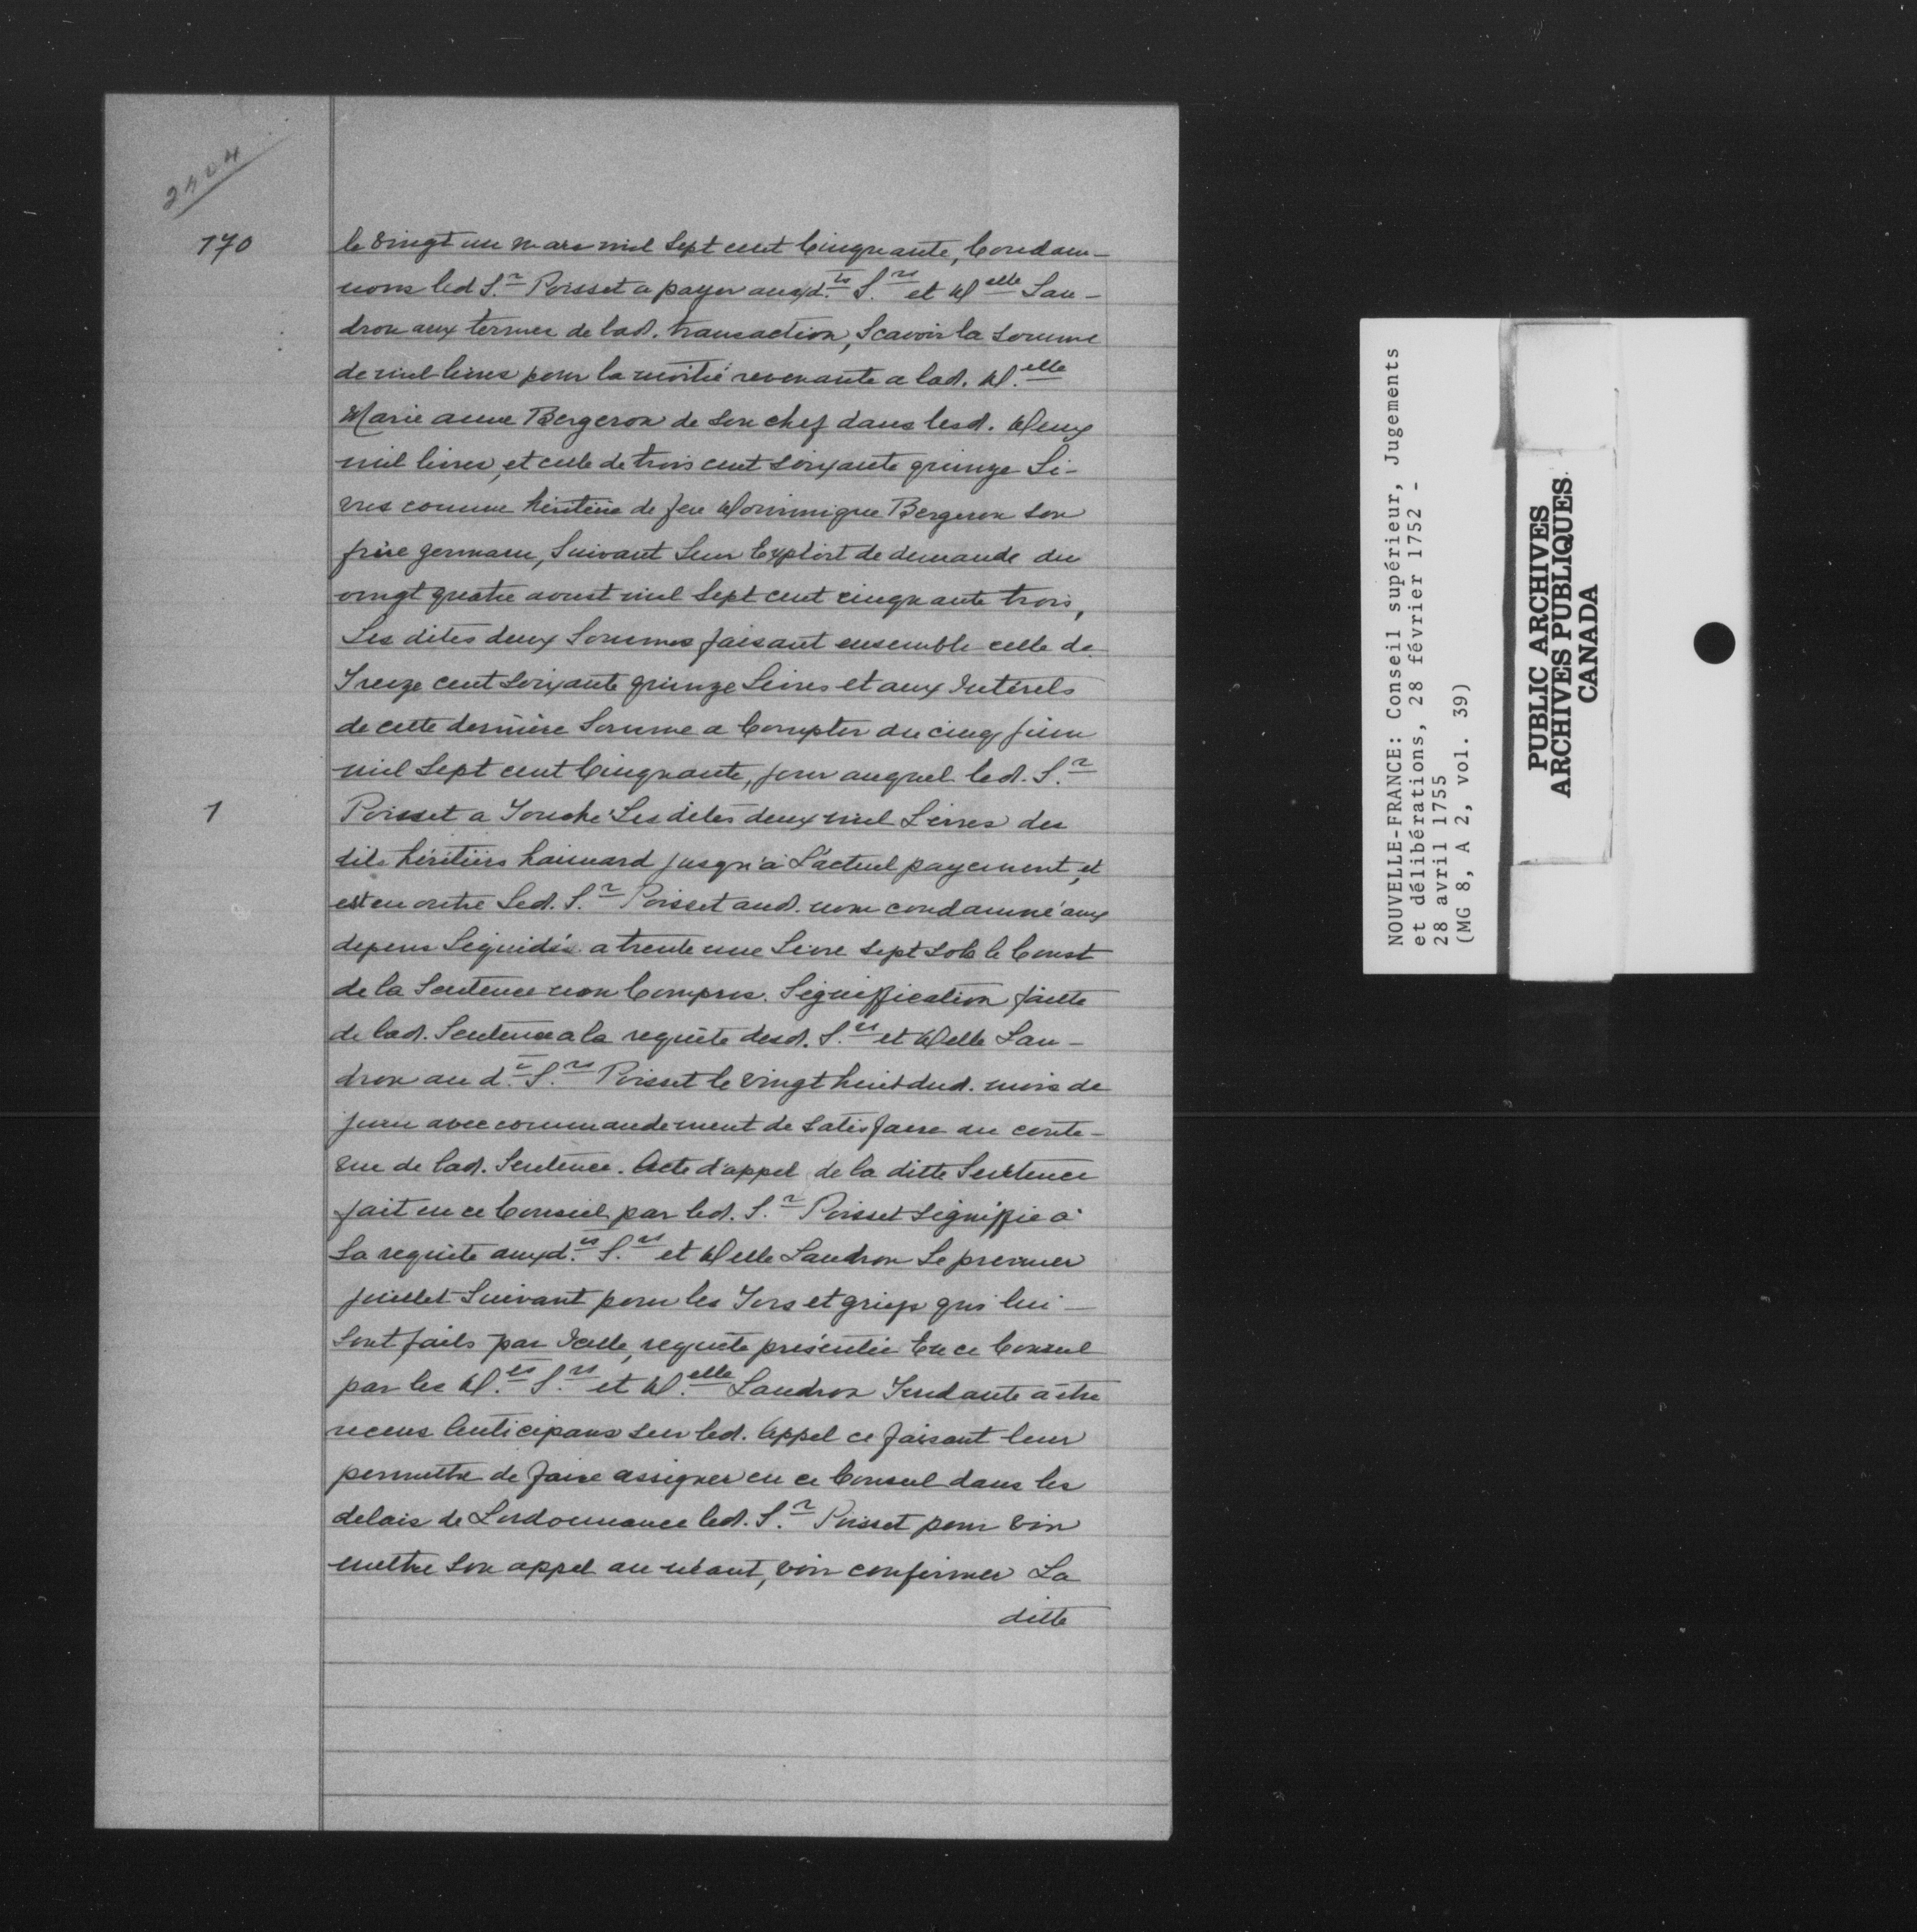 2404
170
le vingt un mars mil Sept cent Cinquante, Condam-
nons led S.r Poisset a payer auxd.ts S.rs et D.elle Lan-
dron aux termes de lad. transaction, Scavoir la Somme
de mil livres pour la moitié revenante a lad. D.elle
Marie anne Bergeron de Son chef dans lesd. Deux
mil livres, et celle de trois cent Soixante quinze Li-
vres comme héritière de feu Dominique Bergeron Son
frère germain, Suivant Leur Exploit de demande du
vingt quatre aoust mil Sept cent cinquante trois,
Les dites deux Sommes faisant ensemble celle de
Treize cent Soixante quinze Livres et aux Intérets
de cette dernière Somme a Compter du cinq juin
mil Sept cent Cinquante, jour auquel led. S.r
1
Poisset a Touché Les dites deux mil Livres des
dits héritiers haimard jusqu'à L'actuel payement, et
est en outre Led. S.r Poisset aud. nom condamné aux
depens Liquidés a trente une Livre Sept Sols le Coust
de la Sentence non Compris. Signiffication faitte
de lad. Sentence a la requête desd. S.rs et Delle Lan-
dron au d. S.r Poisset le vingt huit dud. mois de
juin avec commandement de Satisfaire au conte-
nue de lad. Sentence. Acte d'appel de la ditte Sentence
fait en ce Conseil par led. S.r Poisset Signiffié à
Sa requête auxd.ts S.rs et Delle Landron Le premier
juillet Suivant pour les Tors et griefs qui lui
Sont faits par Icelle, requête présentée En ce Conseil
par les D.ts S.rs et D.elle Landron Tendante à être
receus Anticipans Sur led. Appel ce faisant leur
permettre de faire assigner en ce Conseil dans les
delais de Lordonnance led. S.r Poisset pour voir
mettre Son appel au néant, voir confirmer La
ditte
NOUVELLE-FRANCE: Conseil supérieur, Jugements
et délibérations, 28 février 1752 -
28 avril 1755
(MG 8, A 2, vol. 39)
PUBLIC ARCHIVES
ARCHIVES PUBLIQUES
CANADA